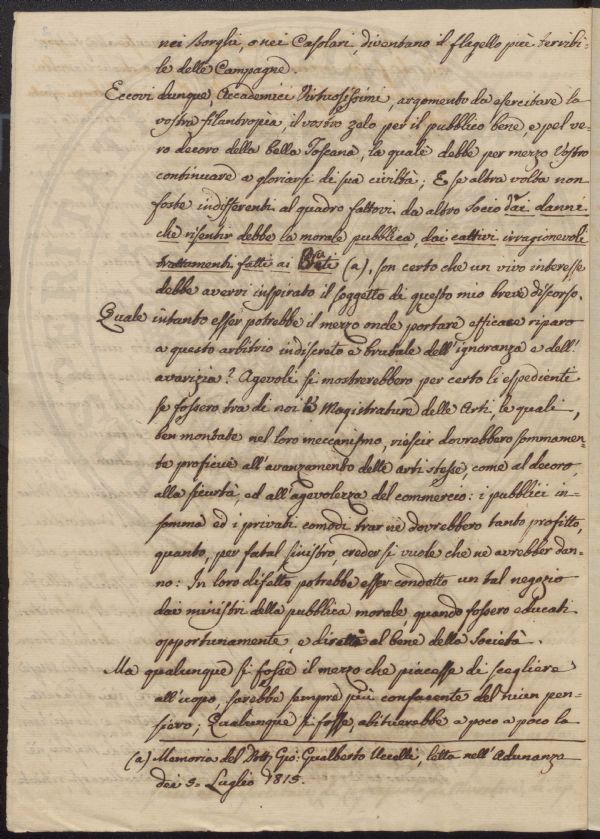 nei Borghi, o nei Casolari, diventano il flagello più terribi-
le delle Campagne.
Eccovi dunque, Accademici Virtuosissimi, argomento da esercitare la
vostra filantropìa, il vostro zelo per il pubblico bene, e pel ve-
ro decoro della bella Toscana, la quale debbe per mezzo Vostro
continuare a gloriarsi di sua civiltà; E se altra volta non
foste indifferenti al quadro fattovi da altro Socio dei danni
che risentir debbe la morale pubblica, dai cattivi irragionevoli
trattamenti fatti ai Bruti (a), son certo che un vivo interesse
debbe avervi inspirato il soggetto di questo mio breve discorso.
Quale intanto esser potrebbe il mezzo onde portare efficace riparo
a questo arbitrio indiscreto e brutale dell'ignoranza e dell'
avarizia? Agevoli si mostrerebbero per certo li espedienti
se fossero tra di noi le Magistrature delle Arti le quali,
ben montate nel loro meccanismo, riescir dovrebbero sommamen-
te proficue all'avanzamento delle arti stesse, come al decoro,
alla sicurtà, ed all'agevolezza del commercio: i pubblici in-
somma ed i privati comodi trar ne dovrebbero tanto profitto,
quanto, per fatal sinistro, creder si vuole che ne avrebber dan-
no: In loro difetto potrebbe esser condotto un tal negozio
dai ministri della pubblica morale quando fossero educati
opportunamente, e diretti al bene della Società.
Ma qualunque si fosse il mezzo che piacesse di scegliere
all'uopo, sarebbe sempre più confacente del niun pen-
siero; Qualunque si fosse, abituerebbe a poco a poco la
(a) Memoria del Dott. Gio: Gualberto Uccelli, letta nell'Adunanza
dei 5. Luglio 1815.